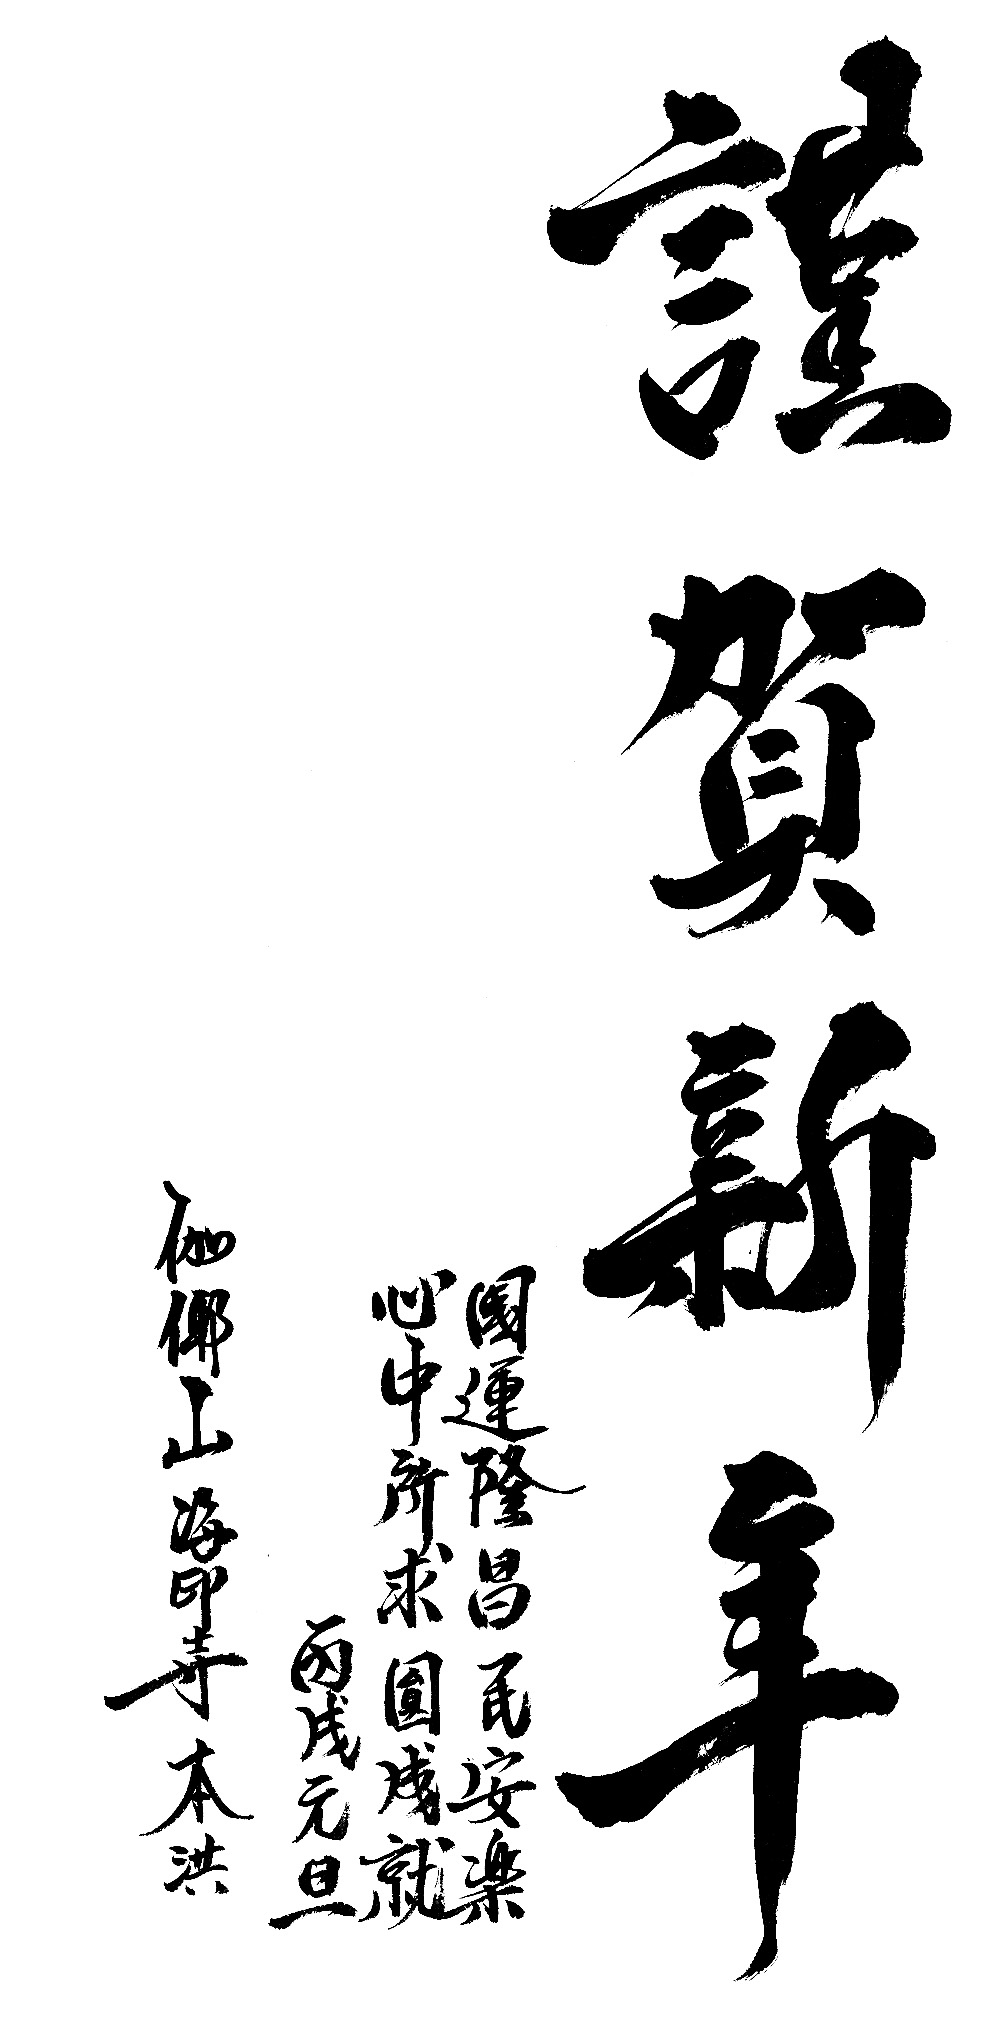 謹賀新年
國運隆昌 民安樂
心中所求 圓成就
丙戌元旦
伽倻山 海印寺 本洪